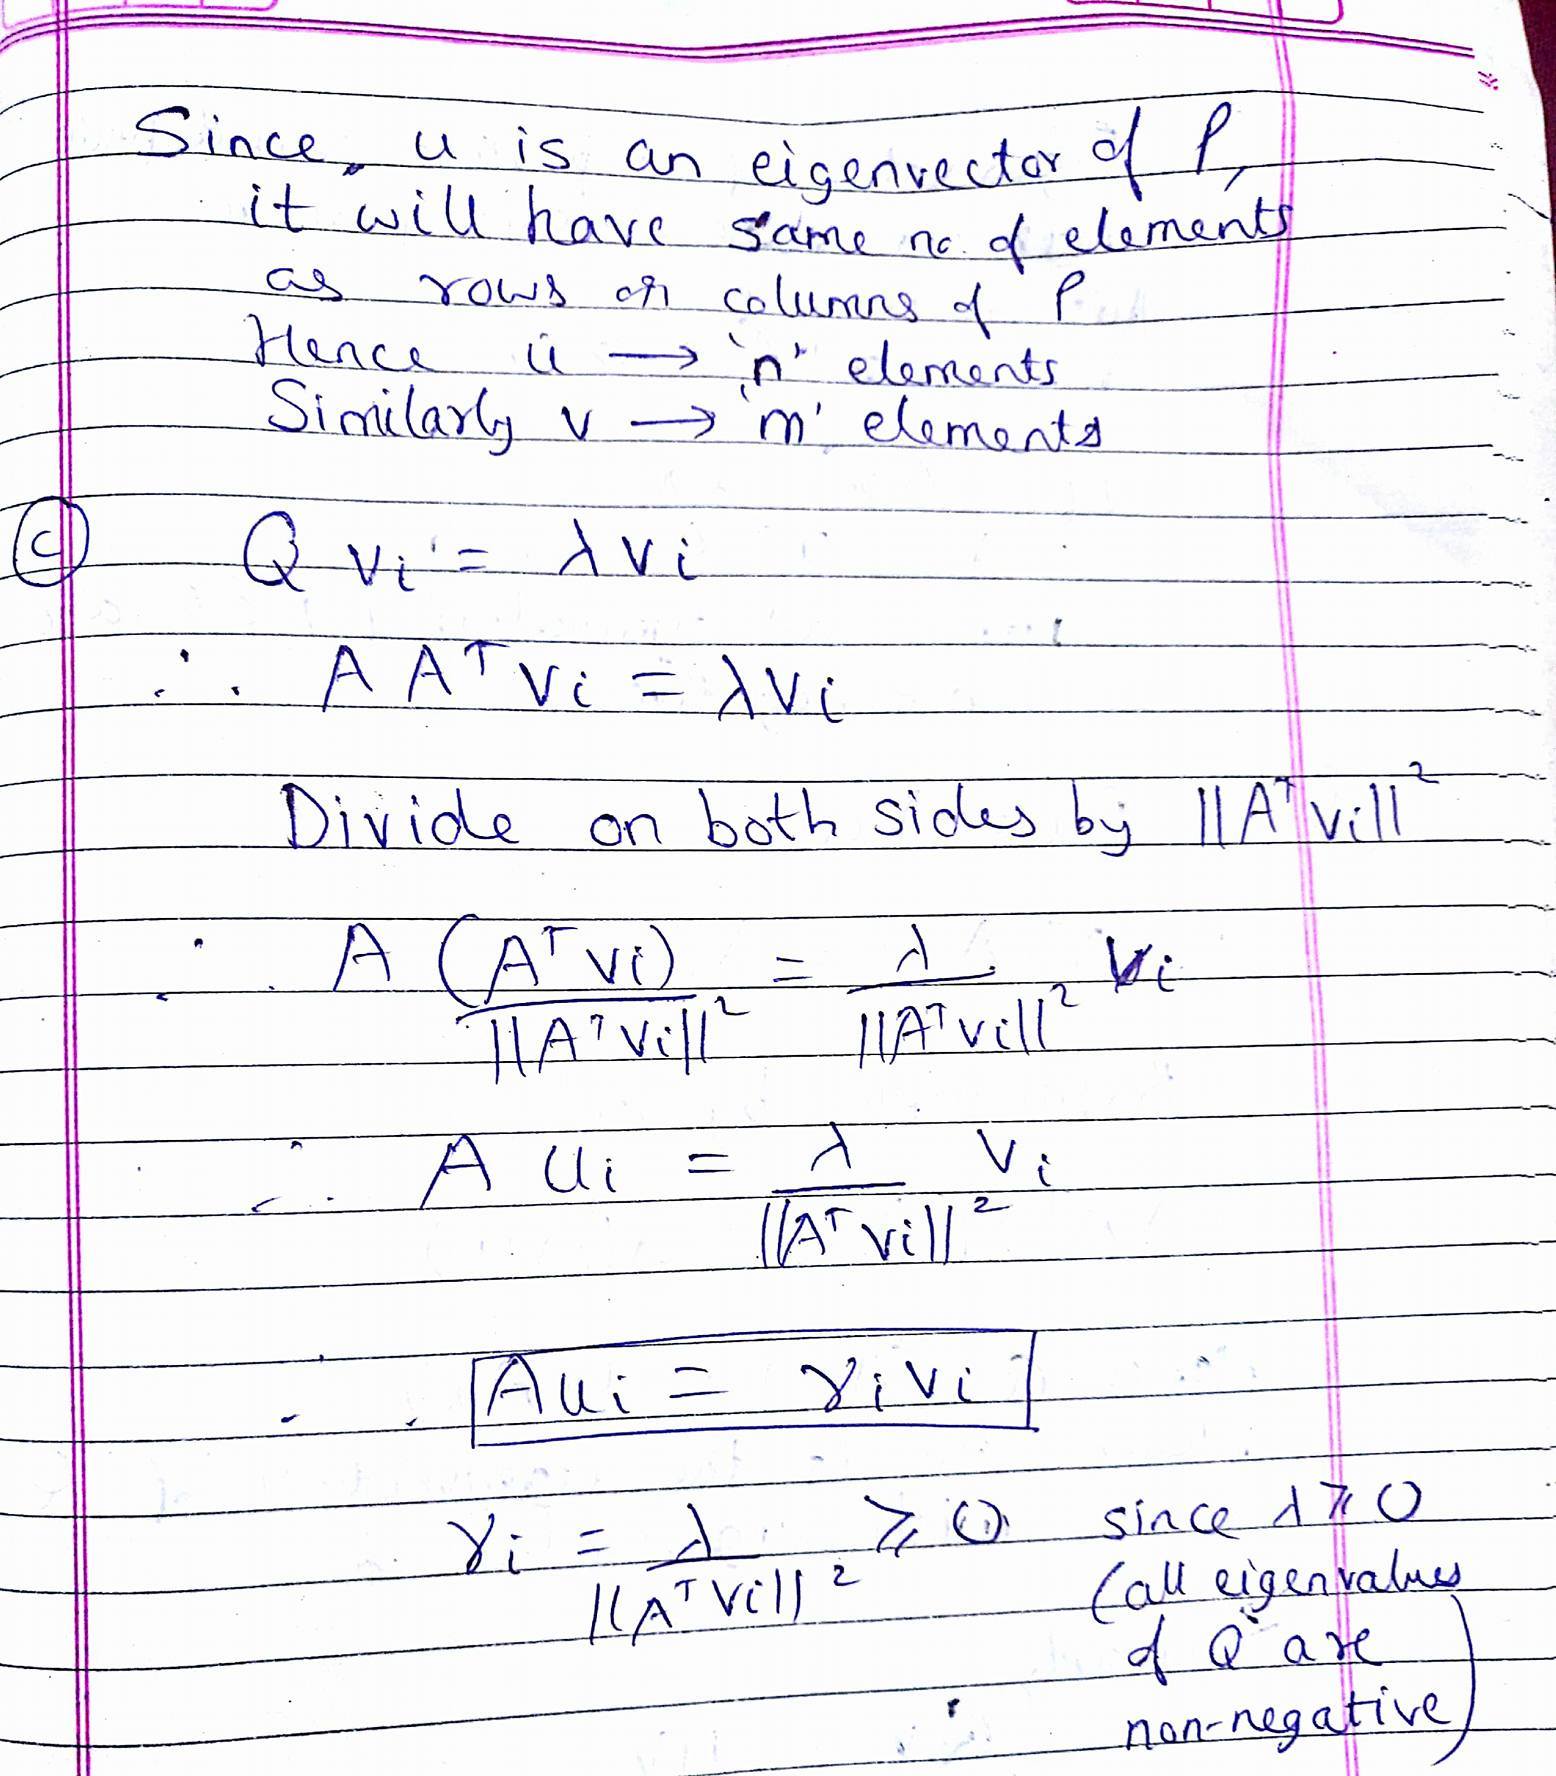 Since, u is an eigenvector of P,
it will have same no. of elements
as rows or columns of P
Hence u → 'n' elements
Similarly v → 'm' elements
(c) Q vi = λ vi
∴ A Aᵀ vi = λ vi
Divide on both sides by ||Aᵀ vi||²
∴ A (Aᵀ vi) / ||Aᵀ vi||² = λ / ||Aᵀ vi||² vi
∴ A ui = λ / ||Aᵀ vi||² vi
∴ A ui = γi vi
γi = λ / ||Aᵀ vi||² ≥ 0 since λ ≥ 0
(all eigenvalues
of Q are
non-negative)